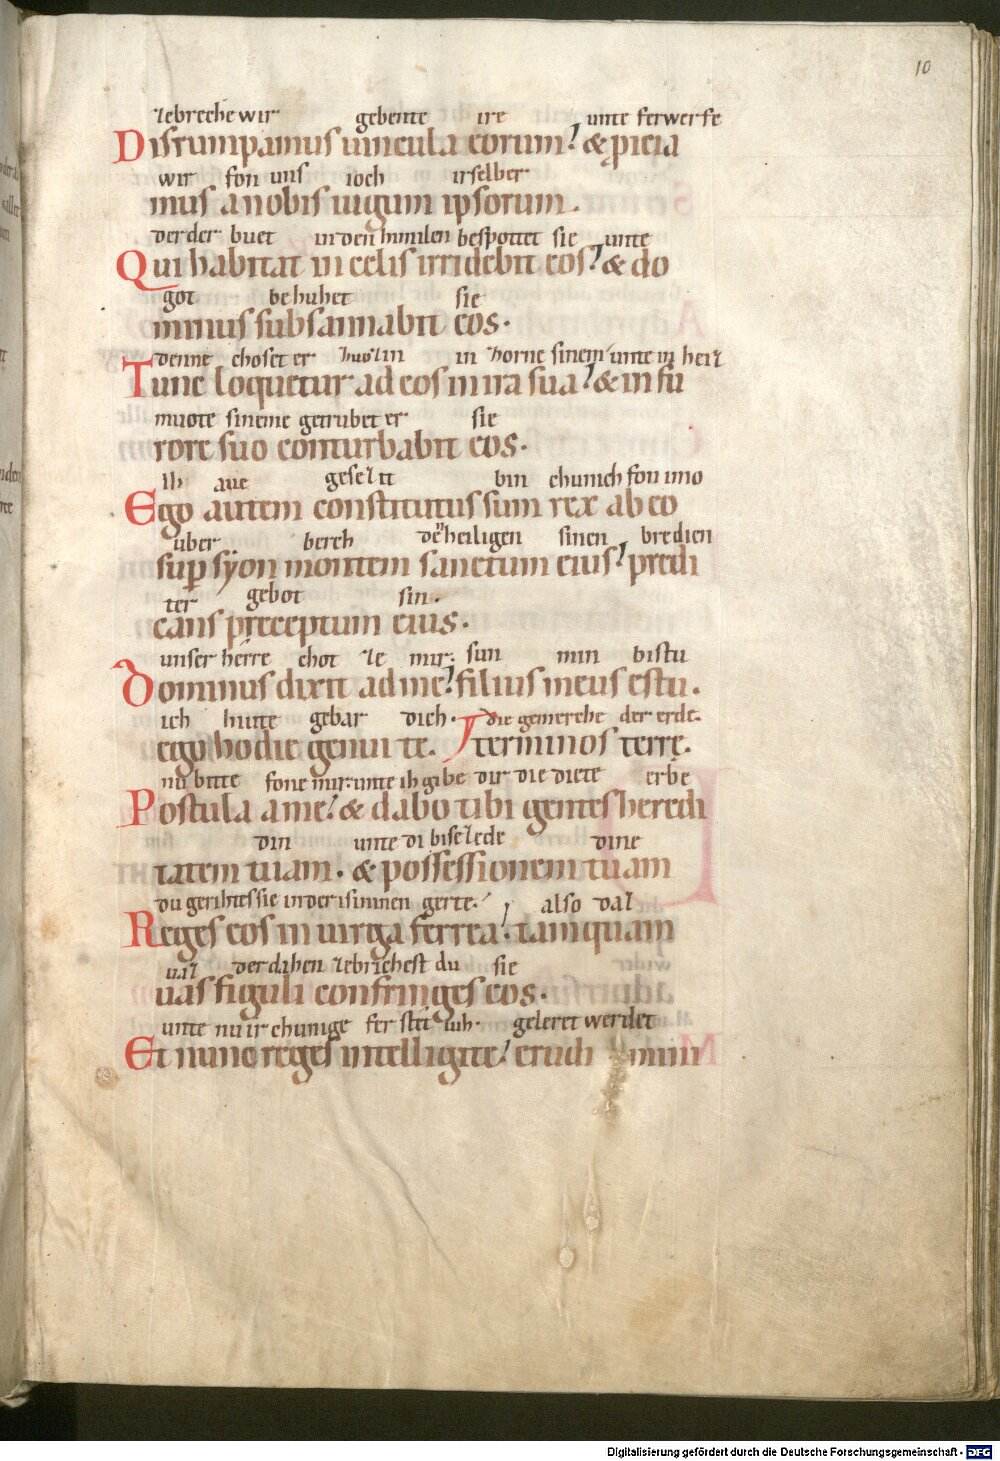 10
zebreche wir gebente ire unte ferwerfe
Disrumpamus uincula eorum? & ꝓicia
wir fon uns ioch irselber
mus a nobis iugum ipsorum.
der der buet in den himilen bespottet sie unte
Qui habitat in celis irridebit eos? & do
got behuhet sie
minus subsannabit eos.
denne choset er zuozin in zorne sinem unte in heiz
Tunc loquetur ad eos in ira sua? & in fu
muote sineme getrubet er sie
rore suo conturbabit eos.
Ih aue gesezzit bin chunich fon imo
Ego autem constitutus sum rex ab eo
uber berch heiligen sinen bredien
suꝑ syon montem sanctum eius? predi
ter gebot sin.
cans pręceptum eius.
unser herre chot ze mir. sun min bistu
Dominus dixit ad me? filius meus es tu.
ich hiute gebar dich. die gemerche der erde.
ego hodie genui te. terminos terrę.
nu bitte fone mir. unte ih gibe dir die diete erbe
Postula a me? & dabo tibi gentes heredi
din unte di bisezzede dine
tatem tuam. & possessionem tuam
du gerihtes sie in der isininen gerte. also daz
Reges eos in uirga ferrea? tamquam
uaz der dahen zebrichest du sie
uas figuli confringes eos.
unte nu ir chunige fer stet iuh. geleret werdet
Et nunc reges intelligite? erudi mini
Digitalisierung gefördert durch die Deutsche Forschungsgemeinschaft - DFG